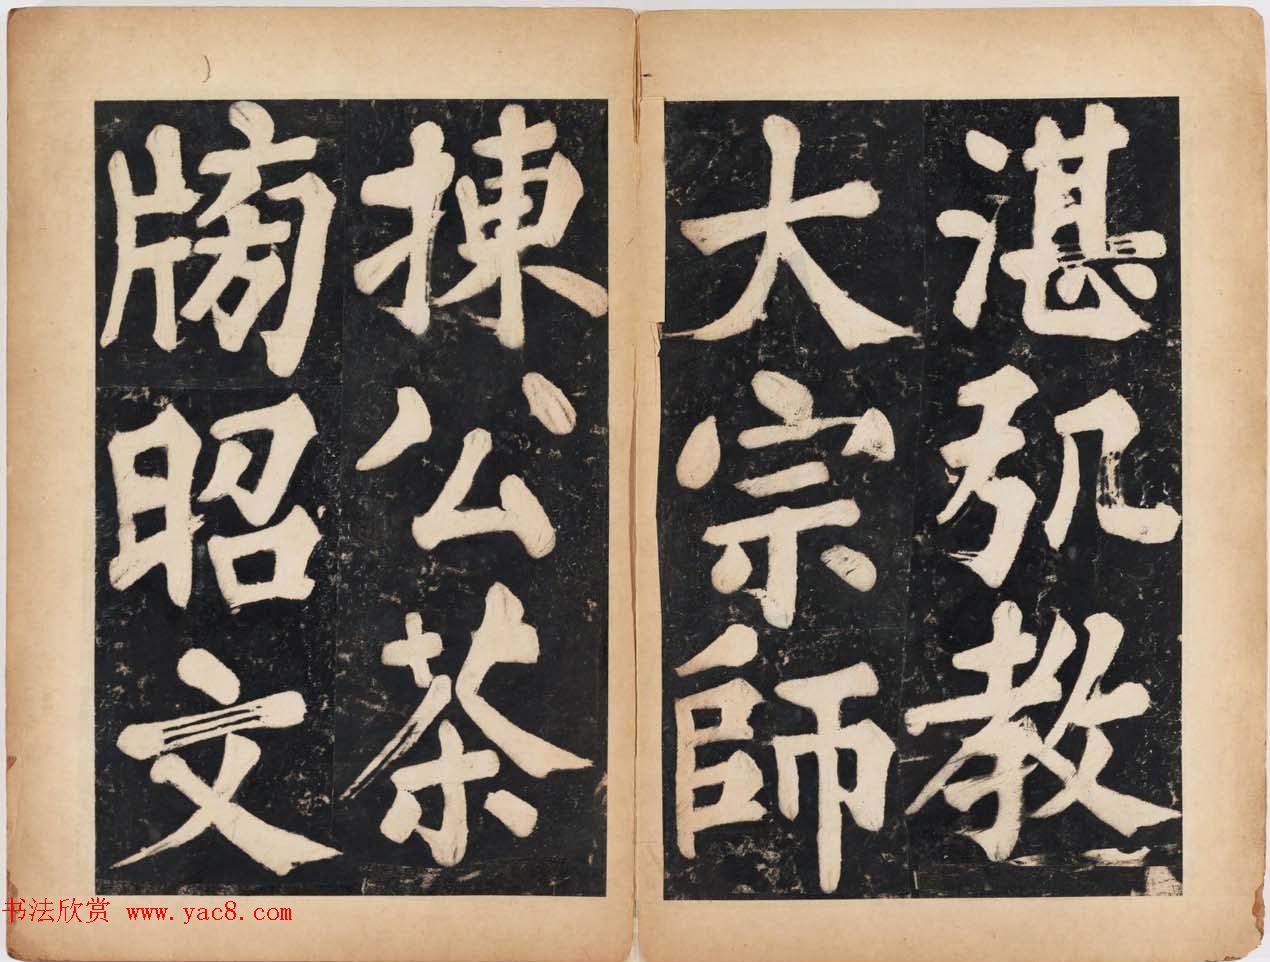 湛弘教
大宗師
揀公茶
牓昭文
书法欣赏 www.yac8.com